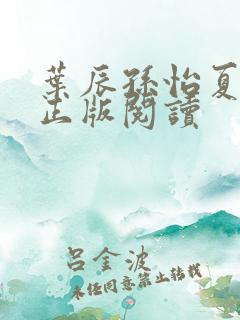 葉辰孫怡夏
正版閱讀
呂金波
未經同意禁止轉載